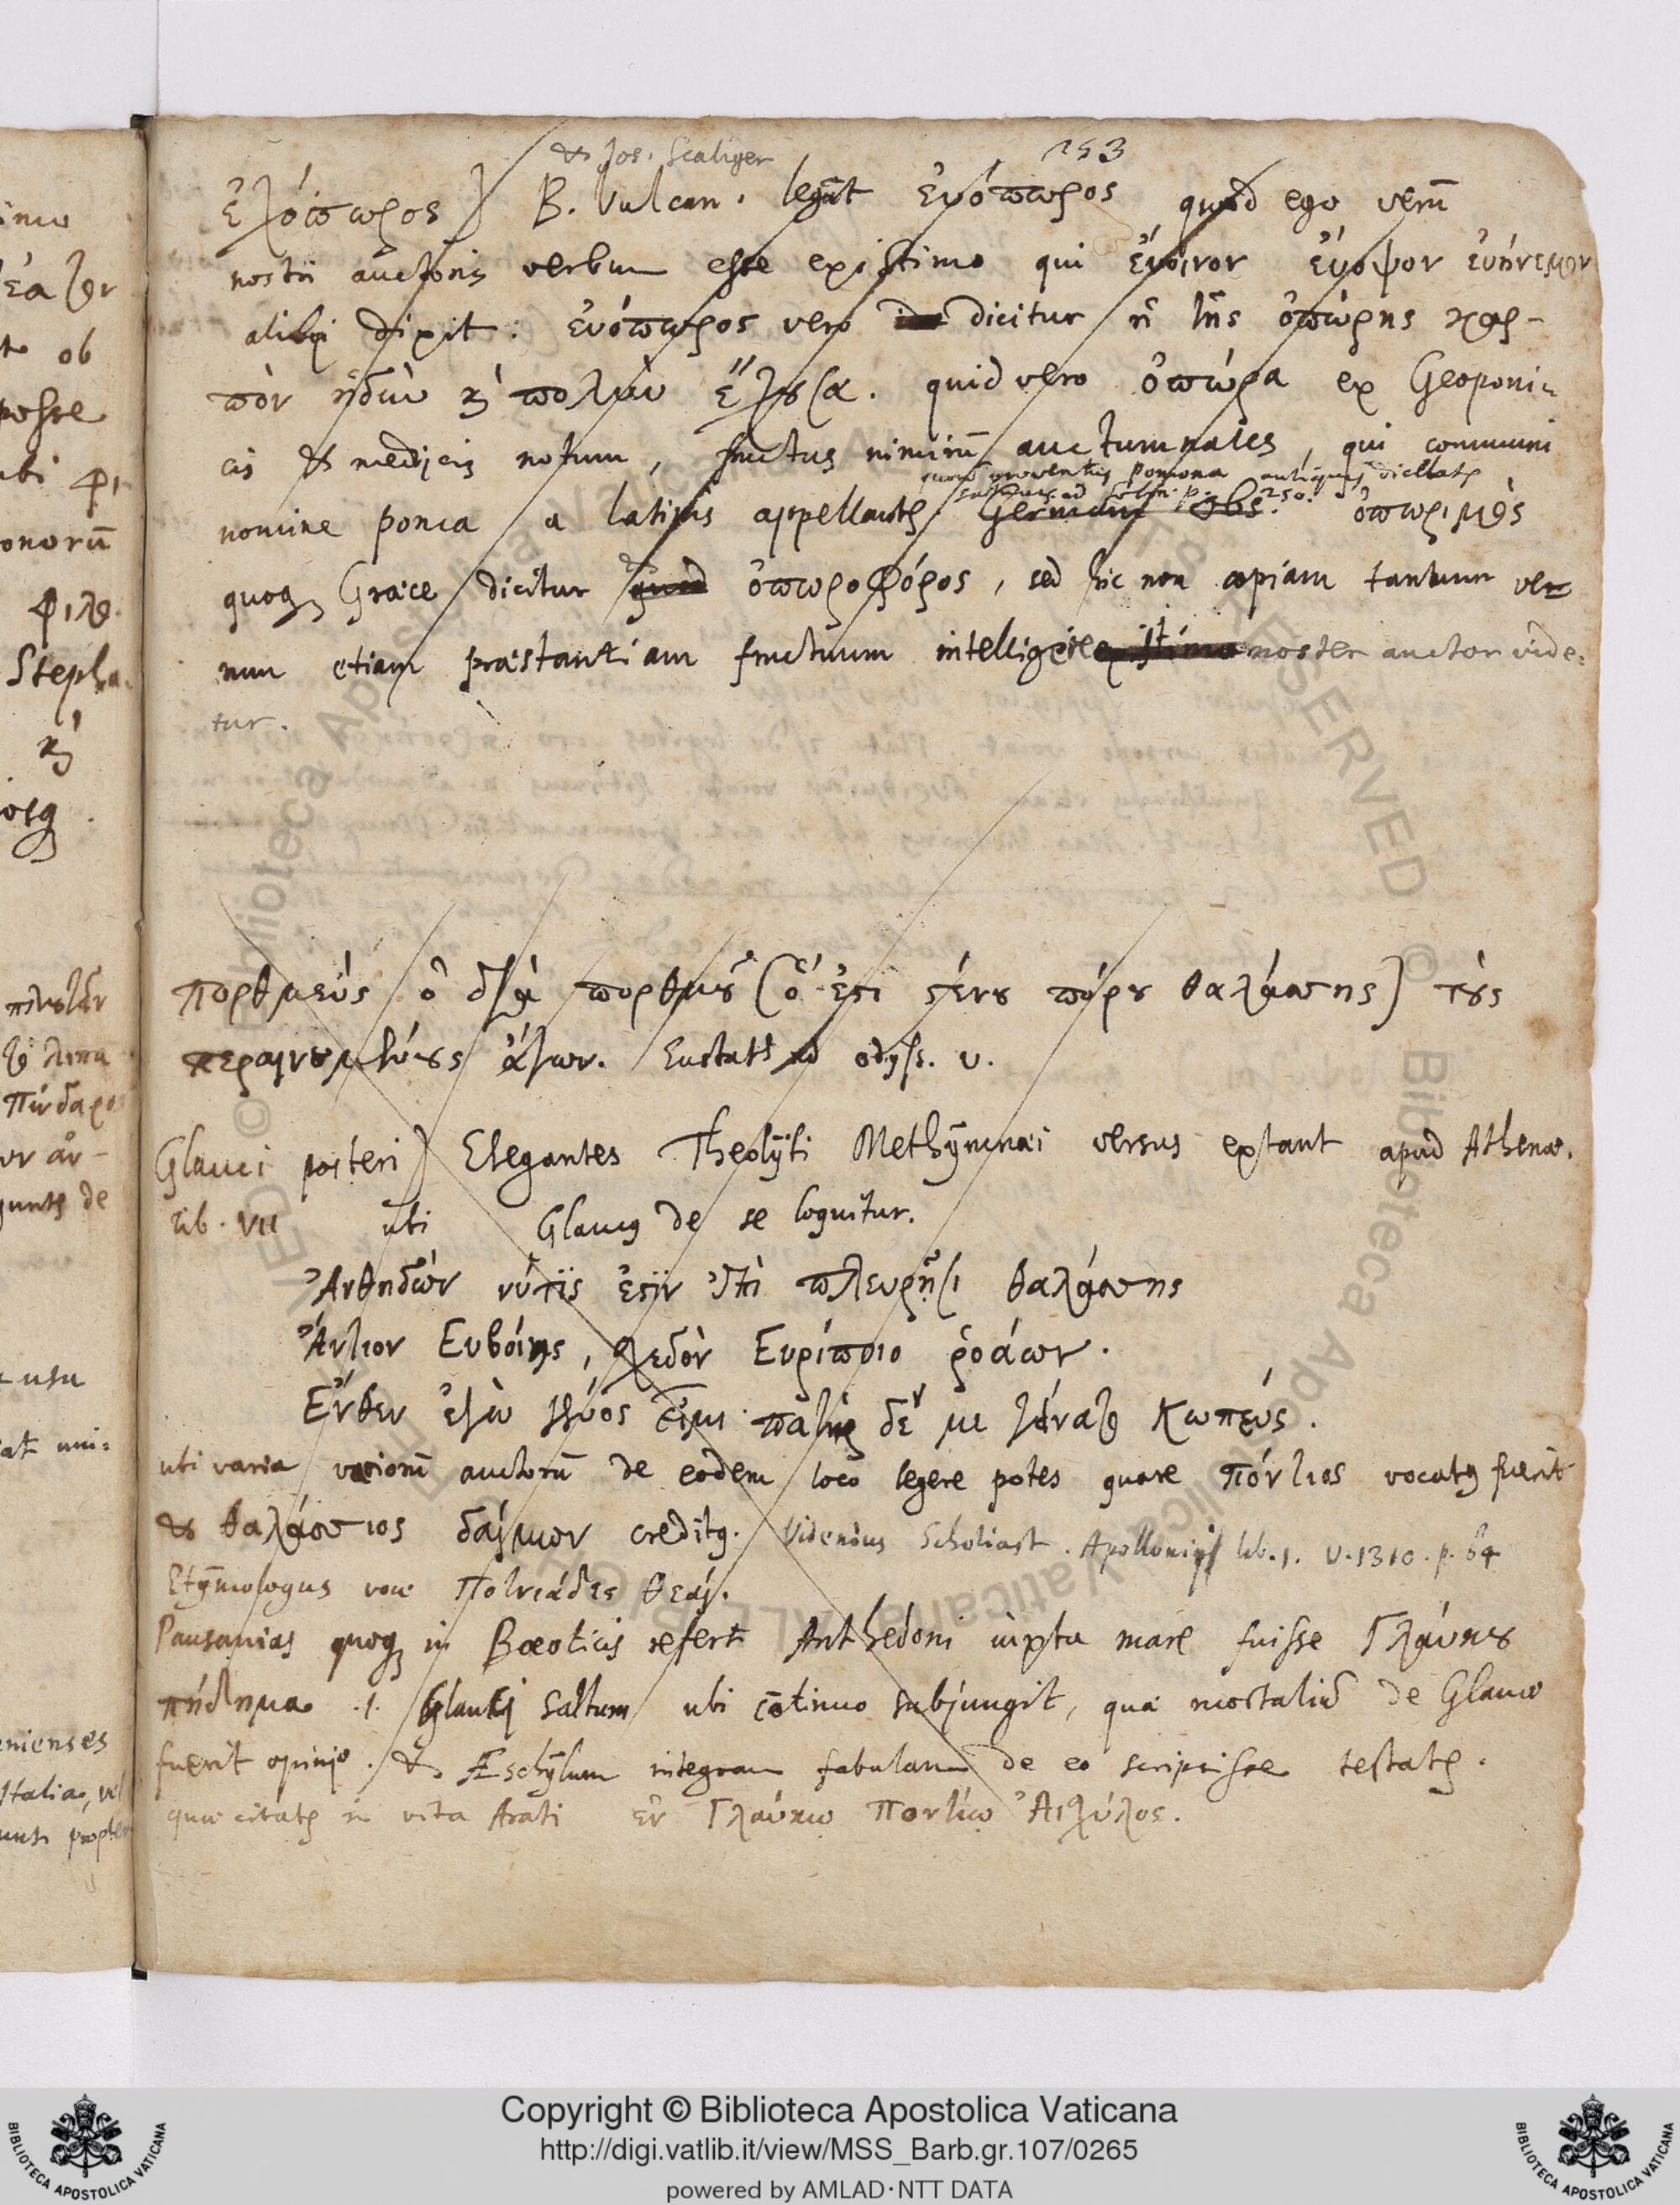 253
& Jos. Scaliger
ἐλόπωρος) B. Vulcan. legūt εὐόπωρος quod ego verū
nostri auctoris verbum esse existimo qui εὔοινον εὔοψον εὐήνεμον
alibi dixit. εὐόπωρος vero dicitur ἡ τῆς ὀπώρης καρ-
πὸν ἡδὺν καὶ πολὺν ἔχουσα. quid vero ὀπώρα ex Geoponi-
cis & medicis notum, fructus nimirū auctumnales, qui communi
quorū proventus pomona antiquis dicebatr
ad Solin. p. 250.
nomine poma a latinis appellantr Obs. ὀπωριμὸς
quoqʒ Græce dicitur quod ὀπωροφόρος, sed hic non copiam tantum ve-
rum etiam præstantiam fructuum intelligere existimo noster auctor vide-
tur.
πορθμεύς ὁ διὰ πορθμοῦ (ὅ ἐστι στενοῦ πόρου θαλάσσης) τοὺς
περαιουμένους ἄγων. Eustath ad odyss. υ.
Glauci posteri) Elegantes Theolyti Methymnæi versus extant apud Athenæ.
lib. VII ubi Glaucus de se loquitur.
Ἀνθηδών νύ τις ἐστιν ἐπὶ πλευρῇσι θαλάσσης
Ἀντίον Εὐβοίης, σχεδὸν Εὐρίποιο ῥοάων.
Ἔνθεν ἐγὼ γένος εἰμι· πατὴρ δέ με γείνατο Κωπεύς.
ubi varia variorū auctorū de eodem loco legere potes quare πόντιος vocatus fuerit
& θαλάσσιος δαίμων creditus. Videndus Scholiast. Apollonij lib. 1. v. 1310. p. 64
Etymologus voce Ποτνιάδες θεαί.
Pausanias quoqʒ in Bœoticis refert Anthedoni iuxta mare fuisse Γλαύκου
πήδημα .i. Glauci saltum ubi cōtinuo subjungit, quæ mortaliū de Glauco
fuerit opinio. & Æschylum integram fabulam de eo scripsisse testatr.
quæ citatr in vita Arati ἐν Γλαύκῳ Ποντίῳ Αἰσχύλος.
Copyright © Biblioteca Apostolica Vaticana
http://digi.vatlib.it/view/MSS_Barb.gr.107/0265
powered by AMLAD·NTT DATA